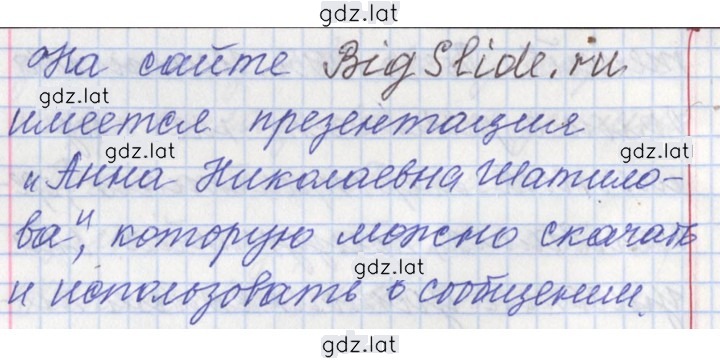 gdz.lat
На сайте BigSlide.ru
gdz.lat
имеется презентация
gdz.lat
gdz.lat
"Анна Николаевна Шатило-
ва", которую можно скачать
gdz.lat
и использовать в сообщении.
gdz.lat